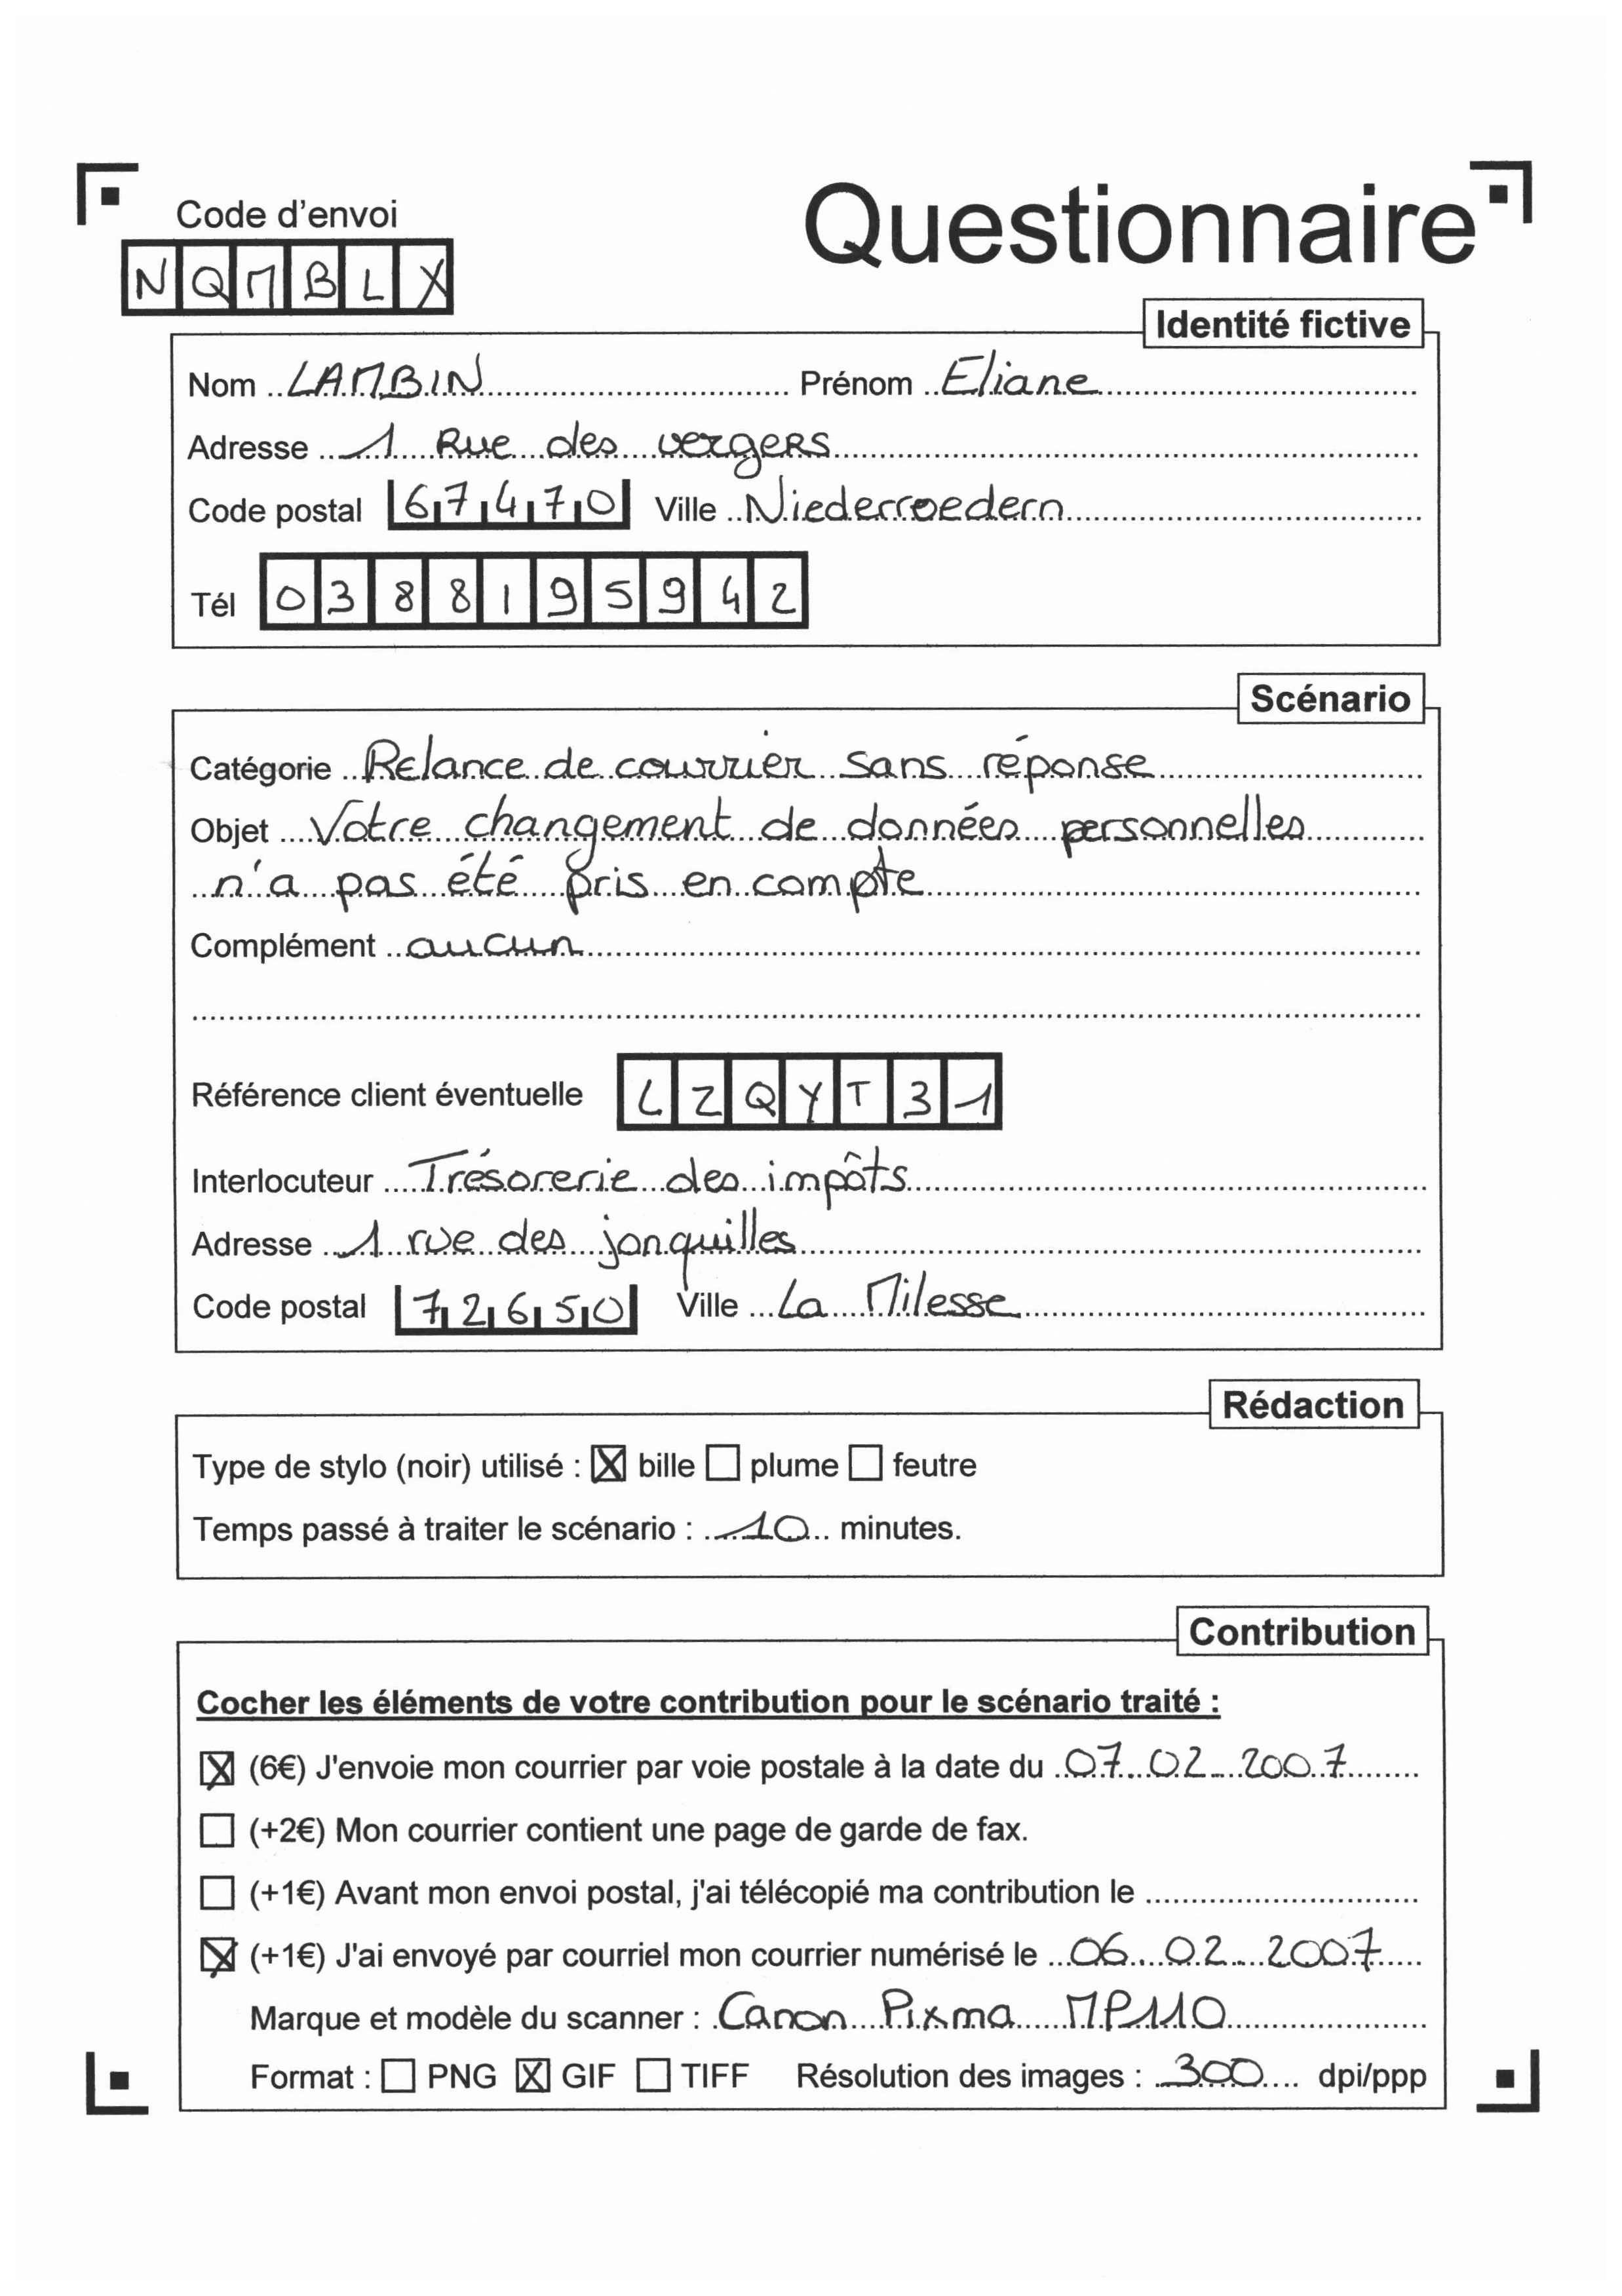 Questionnaire
Code d'envoi
NQMBLX
Identité fictive
Nom LAMBIN Prénom Eliane
Adresse 1 Rue des vergers
Code postal 67470 Ville Niederroedern
Tél 0388195942
Scénario
Catégorie Relance de courrier sans réponse
Objet Votre changement de données personnelles
n'a pas été pris en compte
Complément aucun
Référence client éventuelle LZQYT31
Interlocuteur Trésorerie des impôts
Adresse 1 rue des jonquilles
Code postal 72650 Ville La Milesse
Rédaction
Type de stylo (noir) utilisé : ☒ bille ☐ plume ☐ feutre
Temps passé à traiter le scénario : 10 minutes.
Contribution
Cocher les éléments de votre contribution pour le scénario traité :
☒ (6€) J'envoie mon courrier par voie postale à la date du 07 02 2007
☐ (+2€) Mon courrier contient une page de garde de fax.
☐ (+1€) Avant mon envoi postal, j'ai télécopié ma contribution le
☒ (+1€) J'ai envoyé par courriel mon courrier numérisé le 06 02 2007
Marque et modèle du scanner : Canon Pixma MP110
Format : ☐ PNG ☒ GIF ☐ TIFF Résolution des images : 300 dpi/ppp